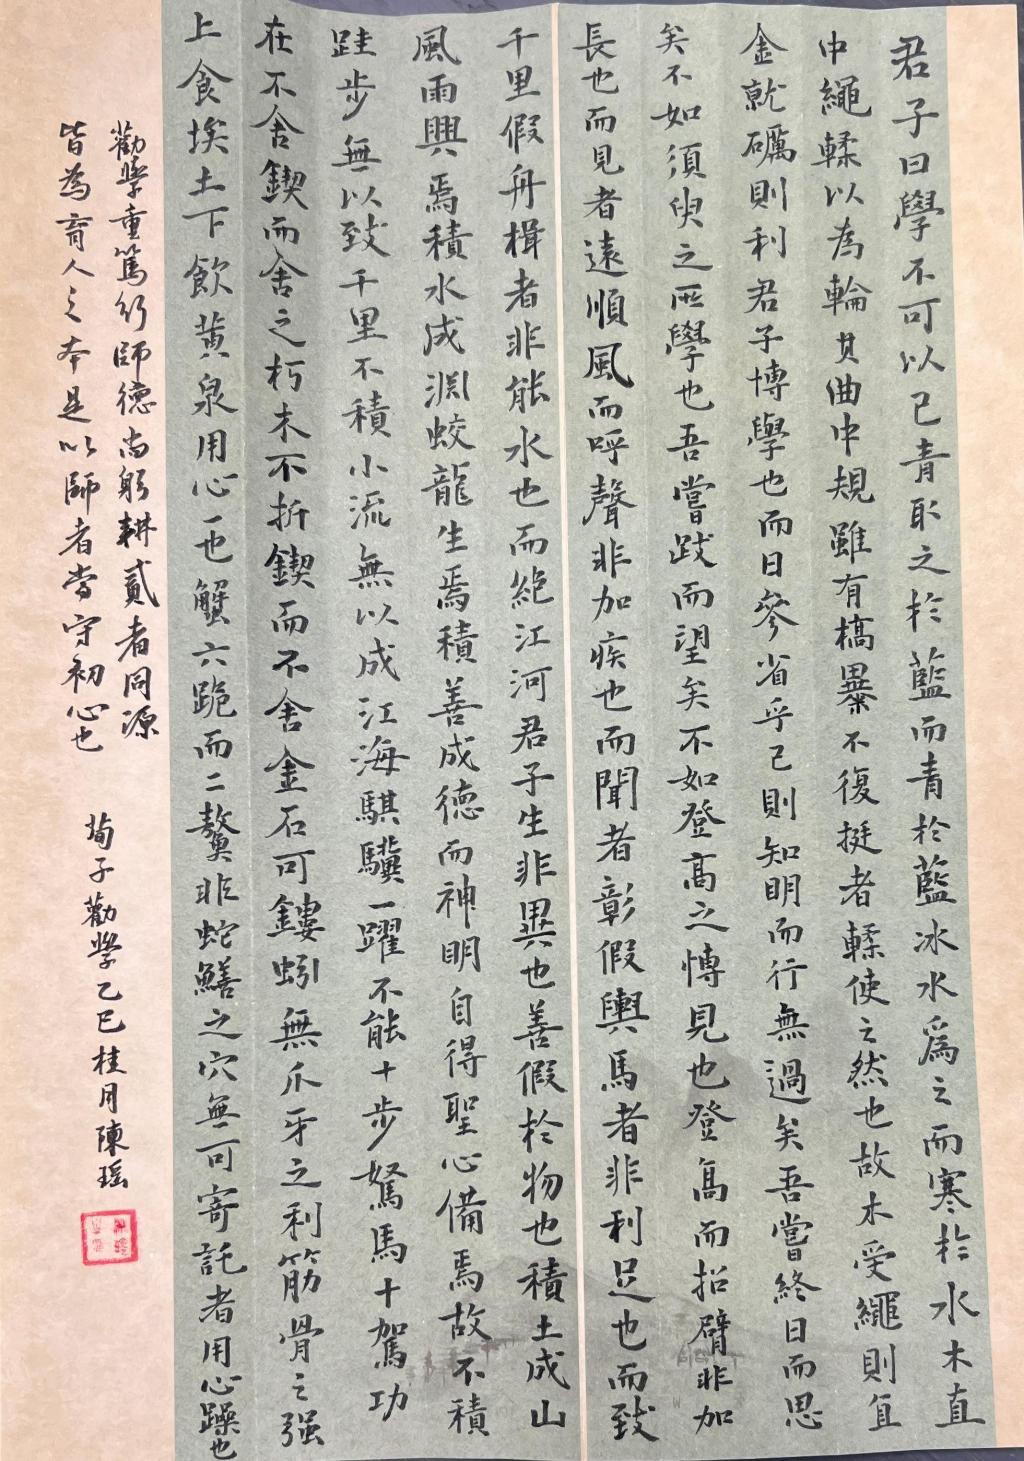 君子曰學不可以已青取之於藍而青於藍冰水為之而寒於水木直
中繩輮以為輪其曲中規雖有槁暴不復挺者輮使之然也故木受繩則直
金就礪則利君子博學也而日參省乎己則知明而行無過矣吾嘗終日而思
矣不如須臾之所學也吾嘗跂而望矣不如登高之博見也登高而招臂非加
長也而見者遠順風而呼聲非加疾也而聞者彰假輿馬者非利足也而致
千里假舟楫者非能水也而絕江河君子生非異也善假於物也積土成山
風雨興焉積水成淵蛟龍生焉積善成德而神明自得聖心備焉故不積
跬步無以致千里不積小流無以成江海騏驥一躍不能十步駑馬十駕功
在不舍鍥而舍之朽木不折鍥而不舍金石可鏤蚓無爪牙之利筋骨之强
上食埃土下飲黃泉用心一也蟹六跪而二螯非蛇鱔之穴無可寄託者用心躁也
勸學重篤行師德尚躬耕貳者同源
皆為育人之本是以師者當守初心也
荀子勸學乙巳桂月陳瑶